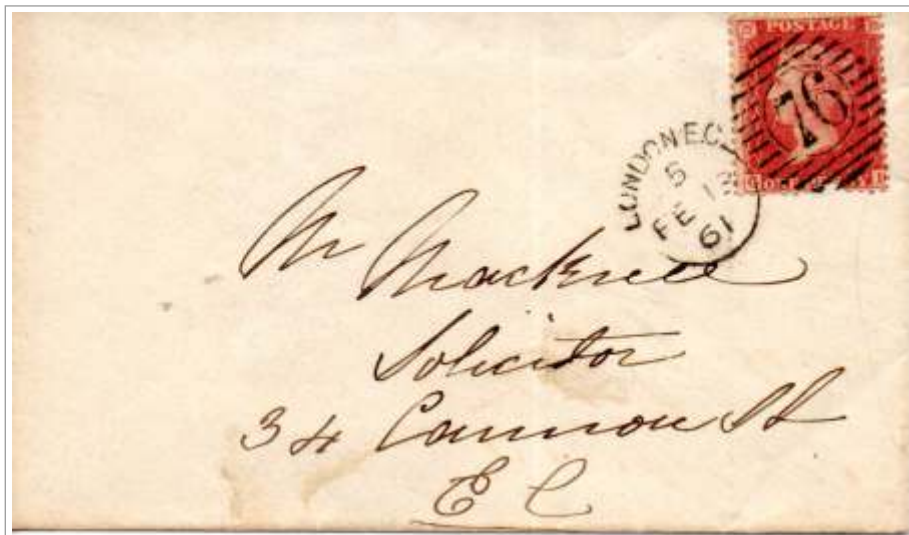 POSTAGE
76
LONDON E.C.
5
FE 13
61
Mr Macknell
Solicitor
34 Cannon St
E C